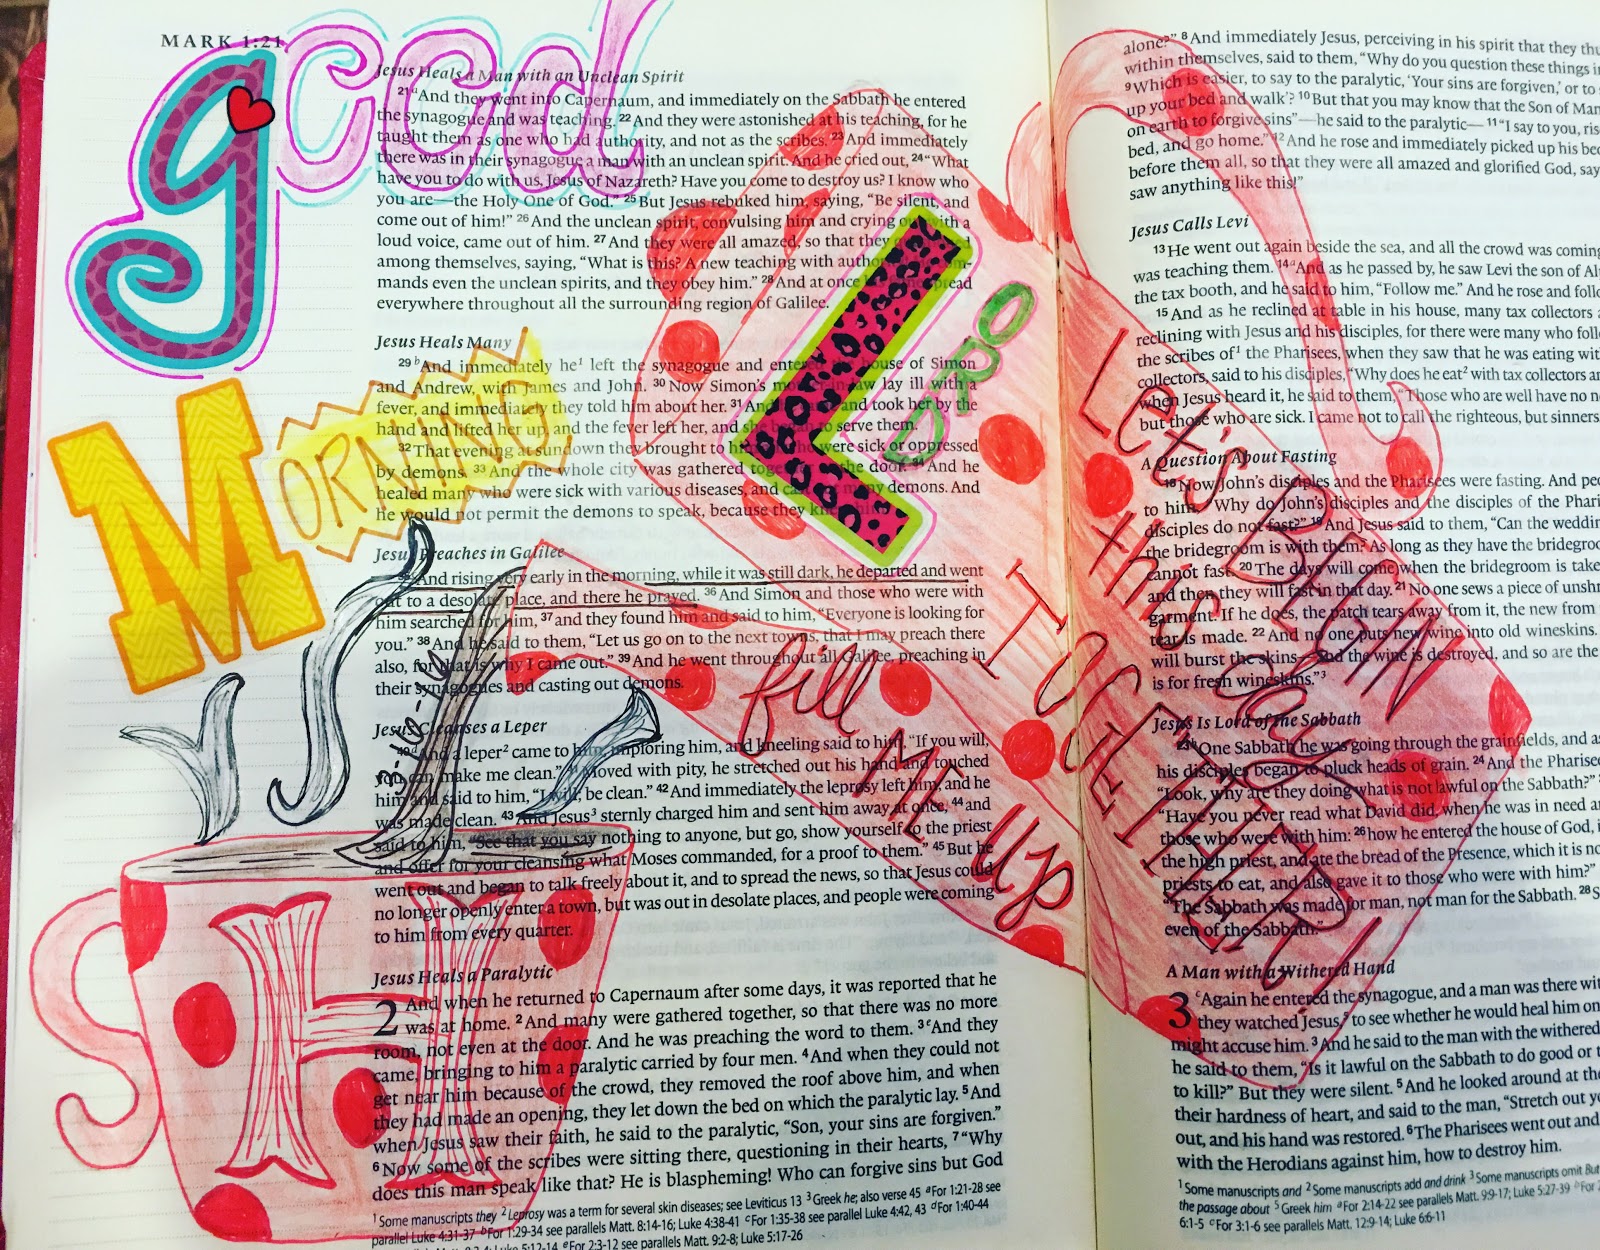 MARK 1:21
good
MORNING
LORD
Jesus Heals a Man with an Unclean Spirit
21 a And they went into Capernaum, and immediately on the Sabbath he entered
the synagogue and was teaching. 22 And they were astonished at his teaching, for he
taught them as one who had authority, and not as the scribes. 23 And immediately
there was in their synagogue a man with an unclean spirit. And he cried out, 24 “What
have you to do with us, Jesus of Nazareth? Have you come to destroy us? I know who
you are—the Holy One of God.” 25 But Jesus rebuked him, saying, “Be silent, and
come out of him!” 26 And the unclean spirit, convulsing him and crying out with a
loud voice, came out of him. 27 And they were all amazed, so that they
among themselves, saying, “What is this? A new teaching with
mands even the unclean spirits, and they obey him.” 28 And at once spread
everywhere throughout all the surrounding region of Galilee.
Jesus Heals Many
29 b And immediately he1 left the synagogue and house of Simon
and Andrew, with James and John. 30 Now Simon's lay ill with a
fever, and immediately they told him about her. 31 And and took her by the
hand and lifted her up, and the fever left her, and she began to serve them.
32 That evening at sundown they brought to were sick or oppressed
by demons. 33 And the whole city was gathered together the door. 34 And he
healed many who were sick with various diseases, and many demons. And
he would not permit the demons to speak, because they
Jesus Preaches in Galilee
And rising very early in the morning, while it was still dark, he departed and went
out to a desolate place, and there he prayed. 36 And Simon and those who were with
him searched for him, 37 and they found him and said to him, “Everyone is looking for
you.” 38 And he said to them, “Let us go on to the next towns, that I may preach there
also, for that is why I came out.” 39 And he went throughout all Galilee, preaching in
their synagogues and casting out demons.
Jesus Cleanses a Leper
And a leper2 came to him, imploring him, and kneeling said to him, “If you will,
you can make me clean.” Moved with pity, he stretched out his hand and touched
him and said to him, “I will; be clean.” 42 And immediately the leprosy left him, and he
was made clean. 43 And Jesus3 sternly charged him and sent him away at once, 44 and
said to him, “See that you say nothing to anyone, but go, show yourself to the priest
and offer for your cleansing what Moses commanded, for a proof to them.” 45 But he
went out and began to talk freely about it, and to spread the news, so that Jesus could
no longer openly enter a town, but was out in desolate places, and people were coming
to him from every quarter.
Jesus Heals a Paralytic
2 And when he returned to Capernaum after some days, it was reported that he
was at home. 2 And many were gathered together, so that there was no more
room, not even at the door. And he was preaching the word to them. 3 c And they
came, bringing to him a paralytic carried by four men. 4 And when they could not
get near him because of the crowd, they removed the roof above him, and when
they had made an opening, they let down the bed on which the paralytic lay. 5 And
when Jesus saw their faith, he said to the paralytic, “Son, your sins are forgiven.”
6 Now some of the scribes were sitting there, questioning in their hearts, 7 “Why
does this man speak like that? He is blaspheming! Who can forgive sins but God
1 Some manuscripts they 2 Leprosy was a term for several skin diseases; see Leviticus 13 3 Greek he; also verse 45 a For 1:21-28 see
parallel Luke 4:31-37 b For 1:29-34 see parallels Matt. 8:14-16; Luke 4:38-41 c For 1:35-38 see parallel Luke 4:42, 43 d For 1:40-44
Luke 5:12-14 e For 2:3-12 see parallels Matt. 9:2-8; Luke 5:17-26
fill ME UP
Let's BEGIN
this day
TOGETHER!
alone?” 8 And immediately Jesus, perceiving in his spirit that they
within themselves, said to them, “Why do you question these things
9 Which is easier, to say to the paralytic, ‘Your sins are forgiven,’ or to
up your bed and walk’? 10 But that you may know that the Son of Man
on earth to forgive sins”—he said to the paralytic— 11 “I say to you,
bed, and go home.” 12 And he rose and immediately picked up his
before them all, so that they were all amazed and glorified God,
saw anything like this!”
Jesus Calls Levi
13 He went out again beside the sea, and all the crowd was coming
was teaching them. 14 d And as he passed by, he saw Levi the son of
the tax booth, and he said to him, “Follow me.” And he rose and
15 And as he reclined at table in his house, many tax collectors
reclining with Jesus and his disciples, for there were many who
the scribes of1 the Pharisees, when they saw that he was eating
collectors, said to his disciples, “Why does he eat2 with tax collectors
when Jesus heard it, he said to them, “Those who are well have no
but those who are sick. I came not to call the righteous, but sinners.
A Question About Fasting
18 Now John's disciples and the Pharisees were fasting. And
to him, “Why do John's disciples and the disciples of the
disciples do not fast?” 19 And Jesus said to them, “Can the
the bridegroom is with them? As long as they have the
cannot fast. 20 The days will come when the bridegroom is
and then they will fast in that day. 21 No one sews a piece of
garment. If he does, the patch tears away from it, the new from
tear is made. 22 And no one puts new wine into old wineskins.
will burst the skins—and the wine is destroyed, and so are the
is for fresh wineskins.”3
Jesus Is Lord of the Sabbath
One Sabbath he was going through the grainfields, and
his disciples began to pluck heads of grain. 24 And the
“Look, why are they doing what is not lawful on the Sabbath?”
“Have you never read what David did, when he was in need
those who were with him: 26 how he entered the house of God,
the high priest, and ate the bread of the Presence, which it is
priests to eat, and also gave it to those who were with him?”
“The Sabbath was made for man, not man for the Sabbath. 28
even of the Sabbath.”
A Man with a Withered Hand
3 Again he entered the synagogue, and a man was there
they watched Jesus,5 to see whether he would heal him on
might accuse him. 3 And he said to the man with the withered
he said to them, “Is it lawful on the Sabbath to do good or
to kill?” But they were silent. 5 And he looked around at
their hardness of heart, and said to the man, “Stretch out
out, and his hand was restored. 6 The Pharisees went out and
with the Herodians against him, how to destroy him.
1 Some manuscripts and 2 Some manuscripts add and drink 3 Some manuscripts omit
the passage about 5 Greek him a For 2:14-22 see parallels Matt. 9:9-17; Luke 5:27-39
6:1-5 c For 3:1-6 see parallels Matt. 12:9-14; Luke 6:6-11